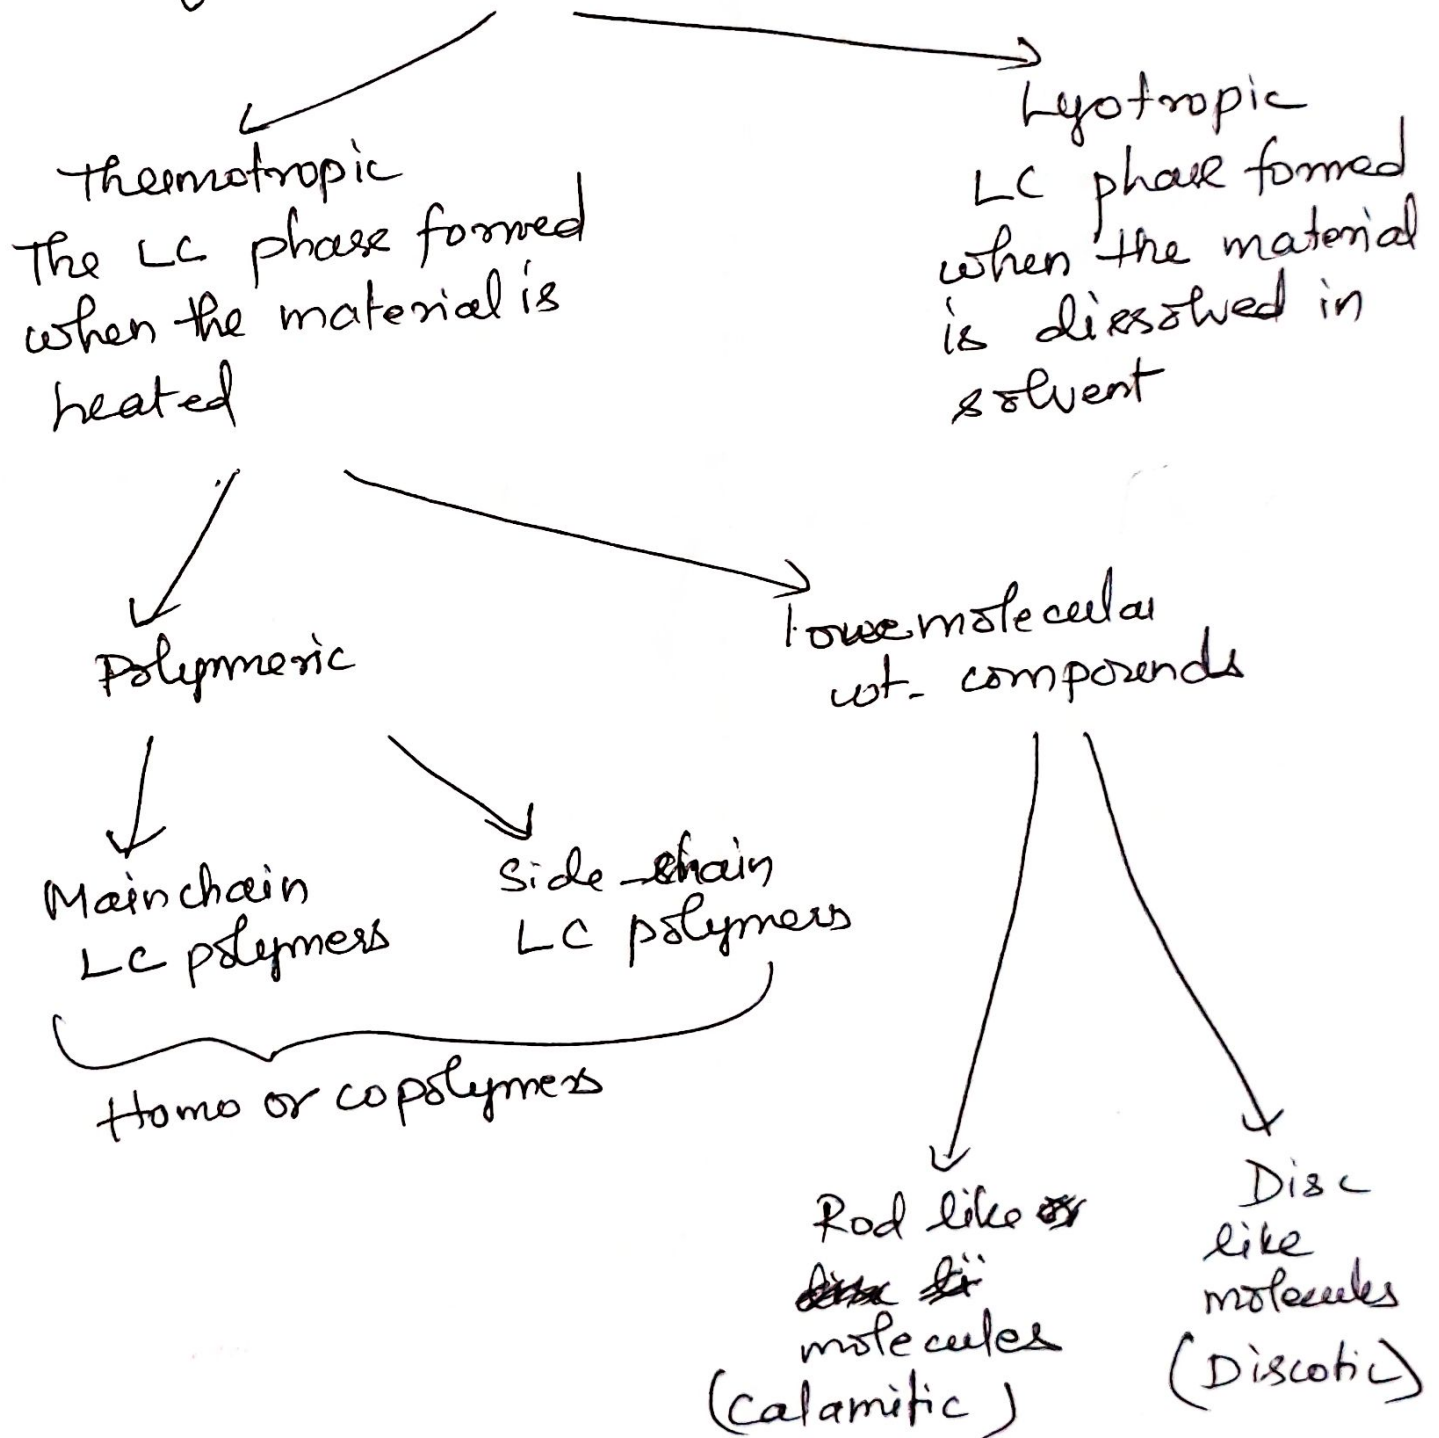 Thermotropic
The LC phase formed
when the material is
heated
Lyotropic
LC phase formed
when the material
is dissolved in
solvent
Polymeric
lower molecular
wt. compounds
Main chain
LC polymers
Side chain
LC polymers
Homo or copolymers
Rod like
molecules
(Calamitic)
Disc
like
molecules
(Discotic)